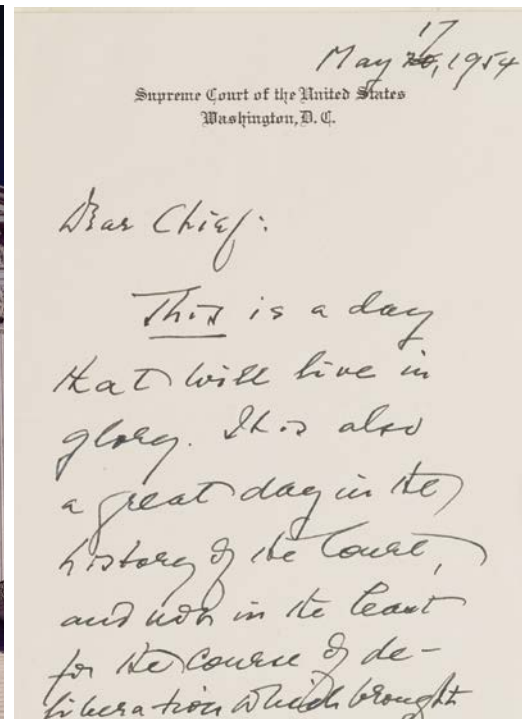 17
May 20, 1954
Supreme Court of the United States
Washington, D. C.
Dear Chief:
This is a day
that will live in
glory. It is also
a great day in the
history of the Court,
and not in the least
for the course of de-
liberation which brought